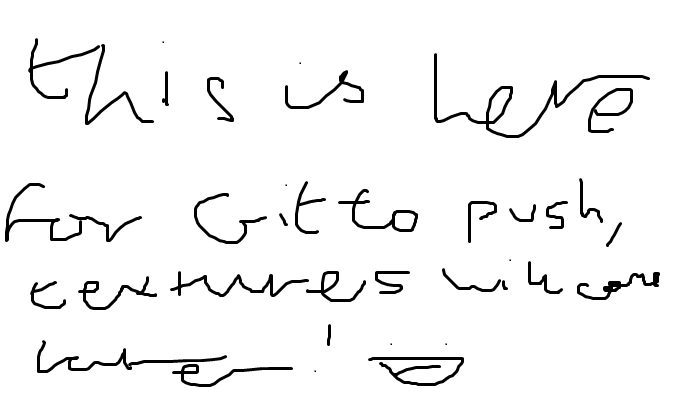 this is here
for Git to push,
textures will come
later!